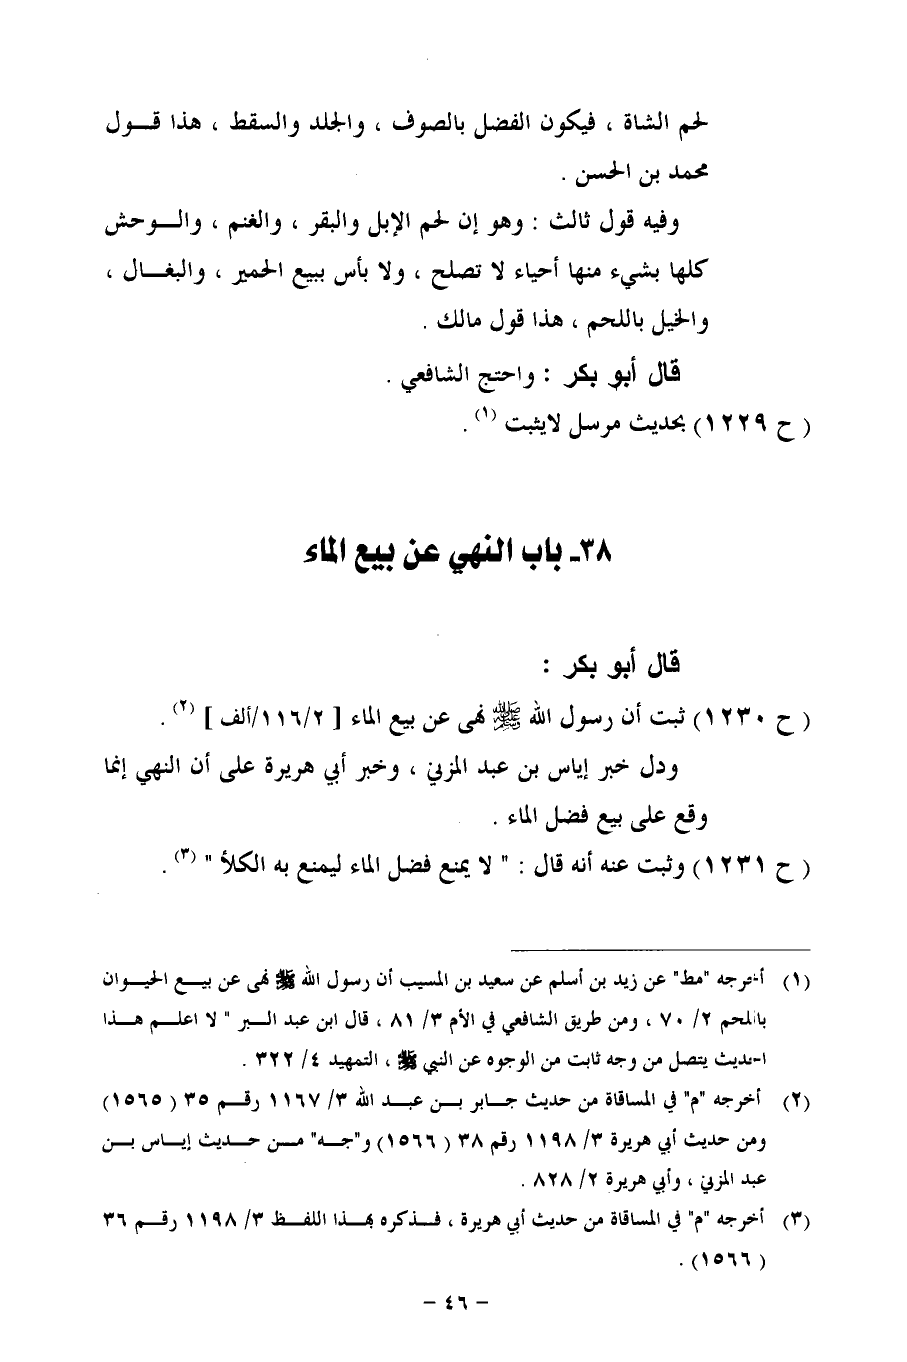 لحم الشاة ، فيكون الفضل بالصوف ، والجلد والسقط ، هذا قول
محمد بن الحسن .
وفيه قول ثالث : وهو إن لحم الإبل والبقر ، والغنم ، والوحش
كلها بشيء منها أحياء لا تصلح ، ولا بأس ببيع الحمير ، والبغال ،
والخيل باللحم ، هذا قول مالك .
قال أبو بكر : واحتج الشافعي .
( ح ١٢٢٩) بحديث مرسل لايثبت (١) .
٣٨ـ باب النهي عن بيع الماء
قال أبو بكر :
( ح ١٢٣٠) ثبت أن رسول الله ﷺ نهى عن بيع الماء [ ١١٦/٢/ألف ] (٢) .
ودل خبر إياس بن عبد المزني ، وخبر أبي هريرة على أن النهي إنما
وقع على بيع فضل الماء .
( ح ١٢٣١) وثبت عنه أنه قال : " لا يمنع فضل الماء ليمنع به الكلأ " (٣) .
(١) أخرجه "مط" عن زيد بن أسلم عن سعيد بن المسيب أن رسول الله ﷺ نهى عن بيع الحيوان
باللحم ٢/ ٧٠ ، ومن طريق الشافعي في الأم ٣/ ٨١ ، قال ابن عبد البر " لا اعلم هذا
الحديث يتصل من وجه ثابت من الوجوه عن النبي ﷺ ، التمهيد ٤/ ٣٢٢ .
(٢) أخرجه "م" في المساقاة من حديث جابر بن عبد الله ٣/ ١١٦٧ رقم ٣٥ ( ١٥٦٥)
ومن حديث أبي هريرة ٣/ ١١٩٨ رقم ٣٨ ( ١٥٦٦) و"جه" من حديث إياس بن
عبد المزني ، وأبي هريرة ٢/ ٨٢٨ .
(٣) أخرجه "م" في المساقاة من حديث أبي هريرة ، فذكره بهذا اللفظ ٣/ ١١٩٨ رقم ٣٦
( ١٥٦٦) .
– ٤٦ –